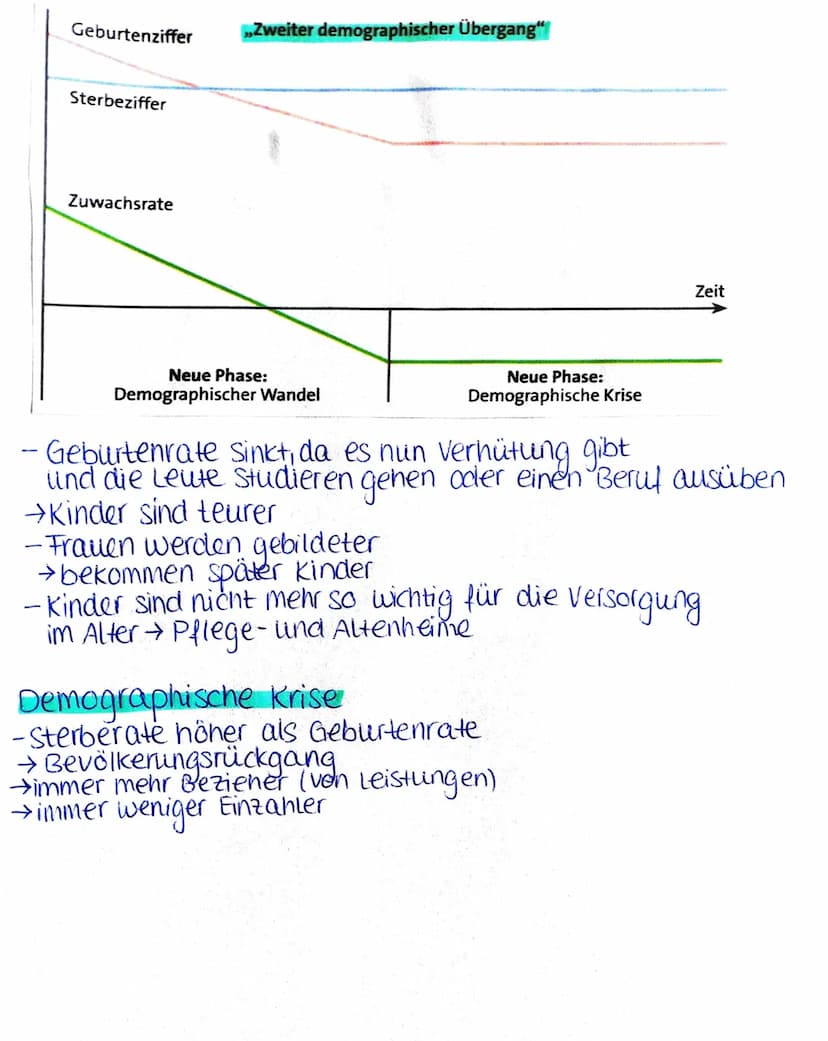 Geburtenziffer
„Zweiter demographischer Übergang“
Sterbeziffer
Zuwachsrate
Zeit
Neue Phase:
Demographischer Wandel
Neue Phase:
Demographische Krise
- Geburtenrate sinkt, da es nun Verhütung gibt
und die Leute studieren gehen oder einen Beruf ausüben
→ Kinder sind teurer
- Frauen werden gebildeter
→ bekommen später Kinder
- Kinder sind nicht mehr so wichtig für die Versorgung
im Alter → Pflege- und Altenheime
Demographische Krise
- Sterberate höher als Geburtenrate
→ Bevölkerungsrückgang
→ immer mehr Bezieher (von Leistungen)
→ immer weniger Einzahler